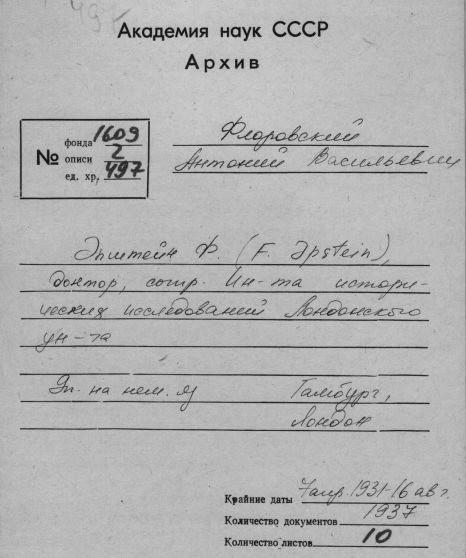 497
Академия наук СССР
Архив
№ фонда 1609
описи 2
ед. хр. 497
Флоровский
Антоний Васильевич
Эпштейн Ф. (F. Epstein),
доктор, сотр. Ин-та истори-
ческих исследований Лондонского
ун-та
Эп. на нем. яз Гамбург,
Лондон
Крайние даты 7 апр. 1931-16 авг.
Количество документов 1937
Количество листов 10